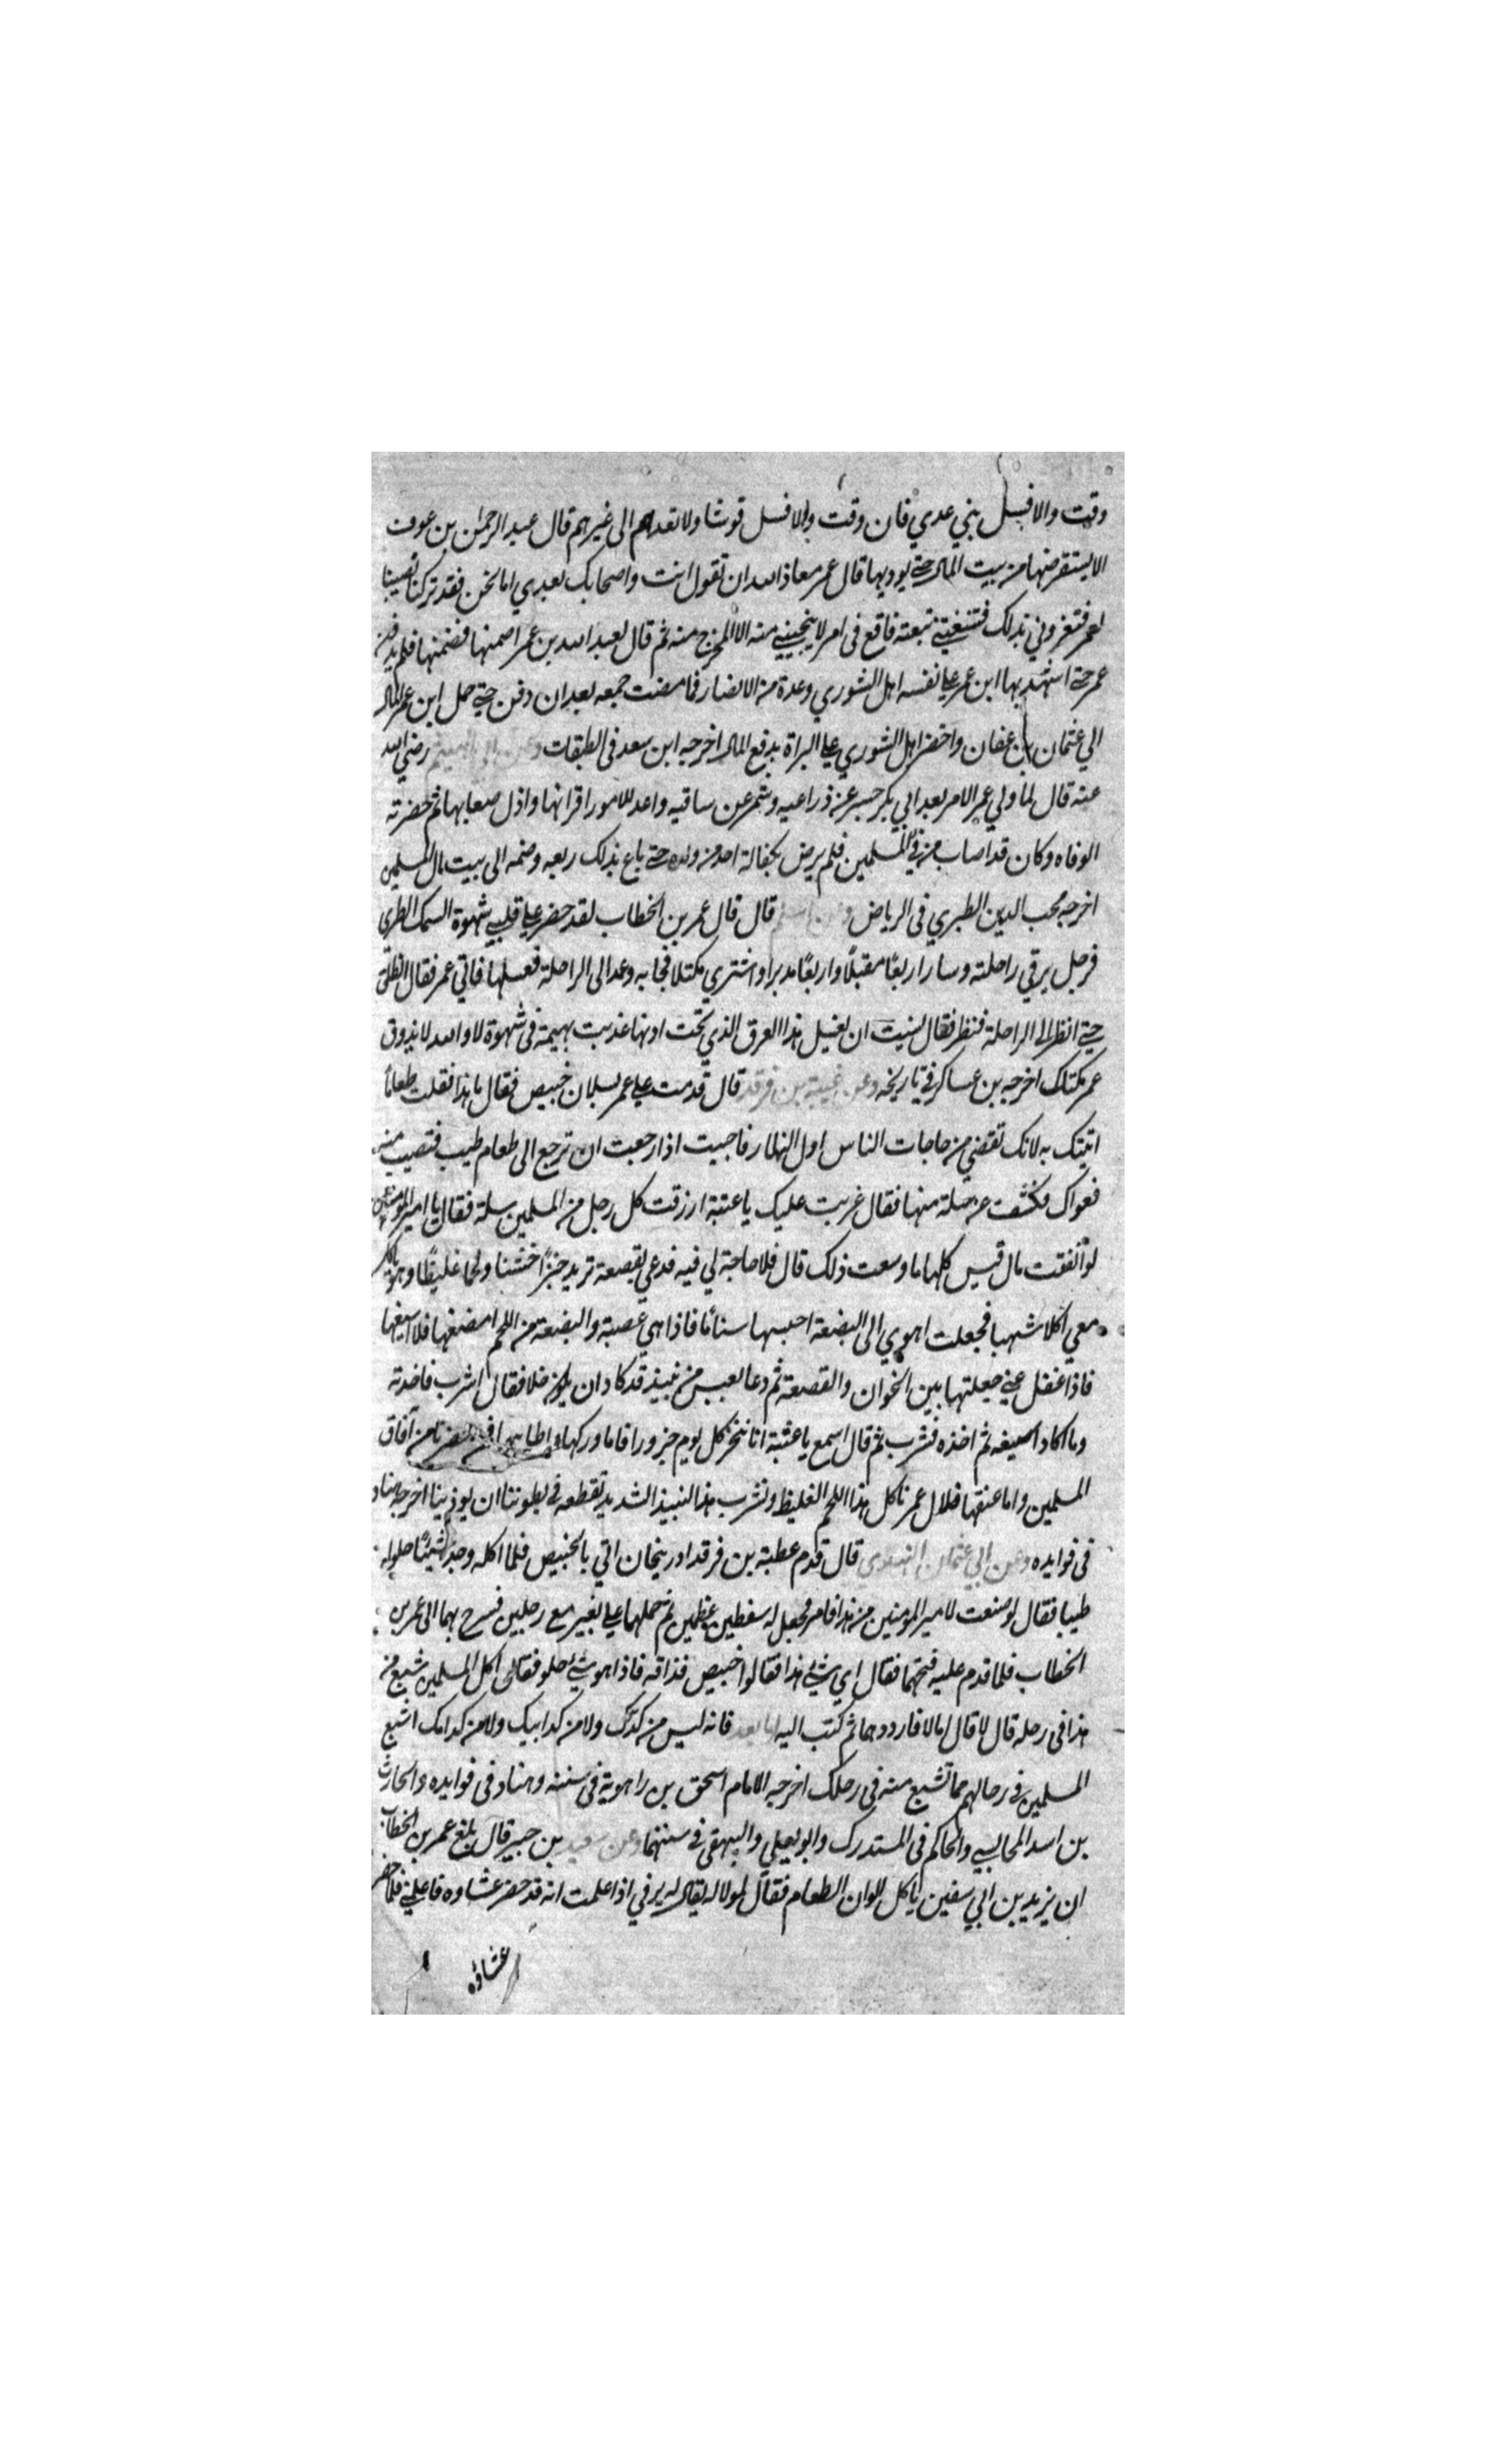 وفت والا فسل بني عدي فان وفت والا فسل قريشا ولا تعدهم الى غيرهم قال عبد الرحمن بن عوف
الا يستقرضها من بيت المال حتى يوديها قال عمر معاذ الله ان تقول انت واصحابك بعدي اما نحن فقد تركنا نصيبنا
لعمر فتغروني بذلك فتتبعني تبعته فاقع في امر لا ينجيني منه الا المخرج منه ثم قال لعبد الله بن عمر اضمنها فضمنها فلم يدفن
عمر حتى اشهد بها ابن عمر على نفسه اهل الشوري وعدة من الانصار فما مضت جمعه بعد ان دفن حتى حمل ابن عمر المال
الي عثمان بن عفان واحضر اهل الشوري على البراة بدفع المال اخرجه ابن سعد في الطبقات وعن رضي الله
عنه قال لما ولي عمر الامر بعد ابي بكر حسر عن ذراعيه وشمر عن ساقيه واعد للامور اقرانها واذل صعابها ثم حضرته
الوفاه وكان قد اصاب من في المسلمين فلم يرض بكفالة احد من ولده حتى باع بذلك ربعه وضمه الى بيت مال المسلمين
اخرجه محب الدين الطبري في الرياض وعن اسلم قال قال عمر بن الخطاب لقد حضر على قلبي شهوة السمك الطري
فرحل يرفي راحلته وسار اربعًا مقبلًا واربعًا مدبرا واشتري مكتلا فجا به وعمد الى الراحلة فغسلها فاتي عمر فقال انطلق
حتى انظر الى الراحلة فنظر فقال نسيت ان تغسل هذا العرق الذي تحت اذنها عذبت بهيمة في شهوة لا والله لا يذوق
عمر مكتلك اخرجه بن عساكر في تاريخه وعن عتبة بن فرقد قال قدمت على عمر بسلان خبيص فقال ما هذا فقلت طعامًا
اتيتك به لانك تقضي من حاجات الناس اول النهار فاحببت اذا رجعت ان ترجع الى طعام طيب فتصيب منه
فقواك فكشفت عن سلة منها فقال عزمت عليك يا عتبة ارزقت كل رجل من المسلمين سلة فقال يا امير المومنين
لو انفقت مال قيس كلها ما وسعت ذلك قال فلا حاجة لي فيه فدعي بقصعة ثريد خبزًا خشنا ولحما غليظًا وهو ياكل
معي اكلا شهيا فجعلت اهوي الى البضعة احسبها سنامًا فاذا هي عصبة والبضعة من اللحم امضغها فلا اسيغها
فاذا غفل عني جعلتها بين الخوان والقصعة ثم دعا بعس من نبيذ قد كاد ان يكون خلا فقال اشرب فاخذته
وما اكاد اسيغه ثم اخذه فشرب ثم قال اسمع يا عتبة انا ننحر كل يوم جزورا فاما وركها واطايبها فلمن حضرنا من آفاق
المسلمين واما عنقها فلال عمر ناكل هذا اللحم الغليظ ونشرب هذا النبيذ الشديد تقطعه في بطوننا ان يوذينا اخرجه هناد
في فوايده وعن ابي عثمان النهدي قال قدم عطبة بن فرقد ادربيجان اتي بالخبيص فلما اكله وجد شيئًا حلوا
طيبا فقال لو صنعت لامير المومنين من هذا فامر فجعل له سفطين عظمين ثم حملها على بعير مع رجلين فسرح بهما الى عمر بن
الخطاب فلما قدم عليه فتحهما فقال اي شي هذا فقالوا خبيص فذاقه فاذا هو شي حلو فقال اكل المسلمين شبع من
هذا في رحله قال لا قال اما لا فارددهما ثم كتب اليه اما بعد فانه ليس من كدك ولا من كد ابيك ولا من كد امك اشبع
المسلمين في رحالهم مما تشبع منه في رحلك اخرجه الامام اسحق بن راهوية في سننه وهناد في فوايده والحارث
بن اسد المحاسبي والحاكم في المستدرك وابو يعلي والبيهقى في سننهما وعن سعيد بن جبير قال بلغ عمر بن الخطاب
ان يزيد بن ابي سفين ياكل الوان الطعام فقال لمولا له يقال له يرفي اذا علمت انه قد حضر عشاوه فاعلمني فلما حضر
عشاؤه